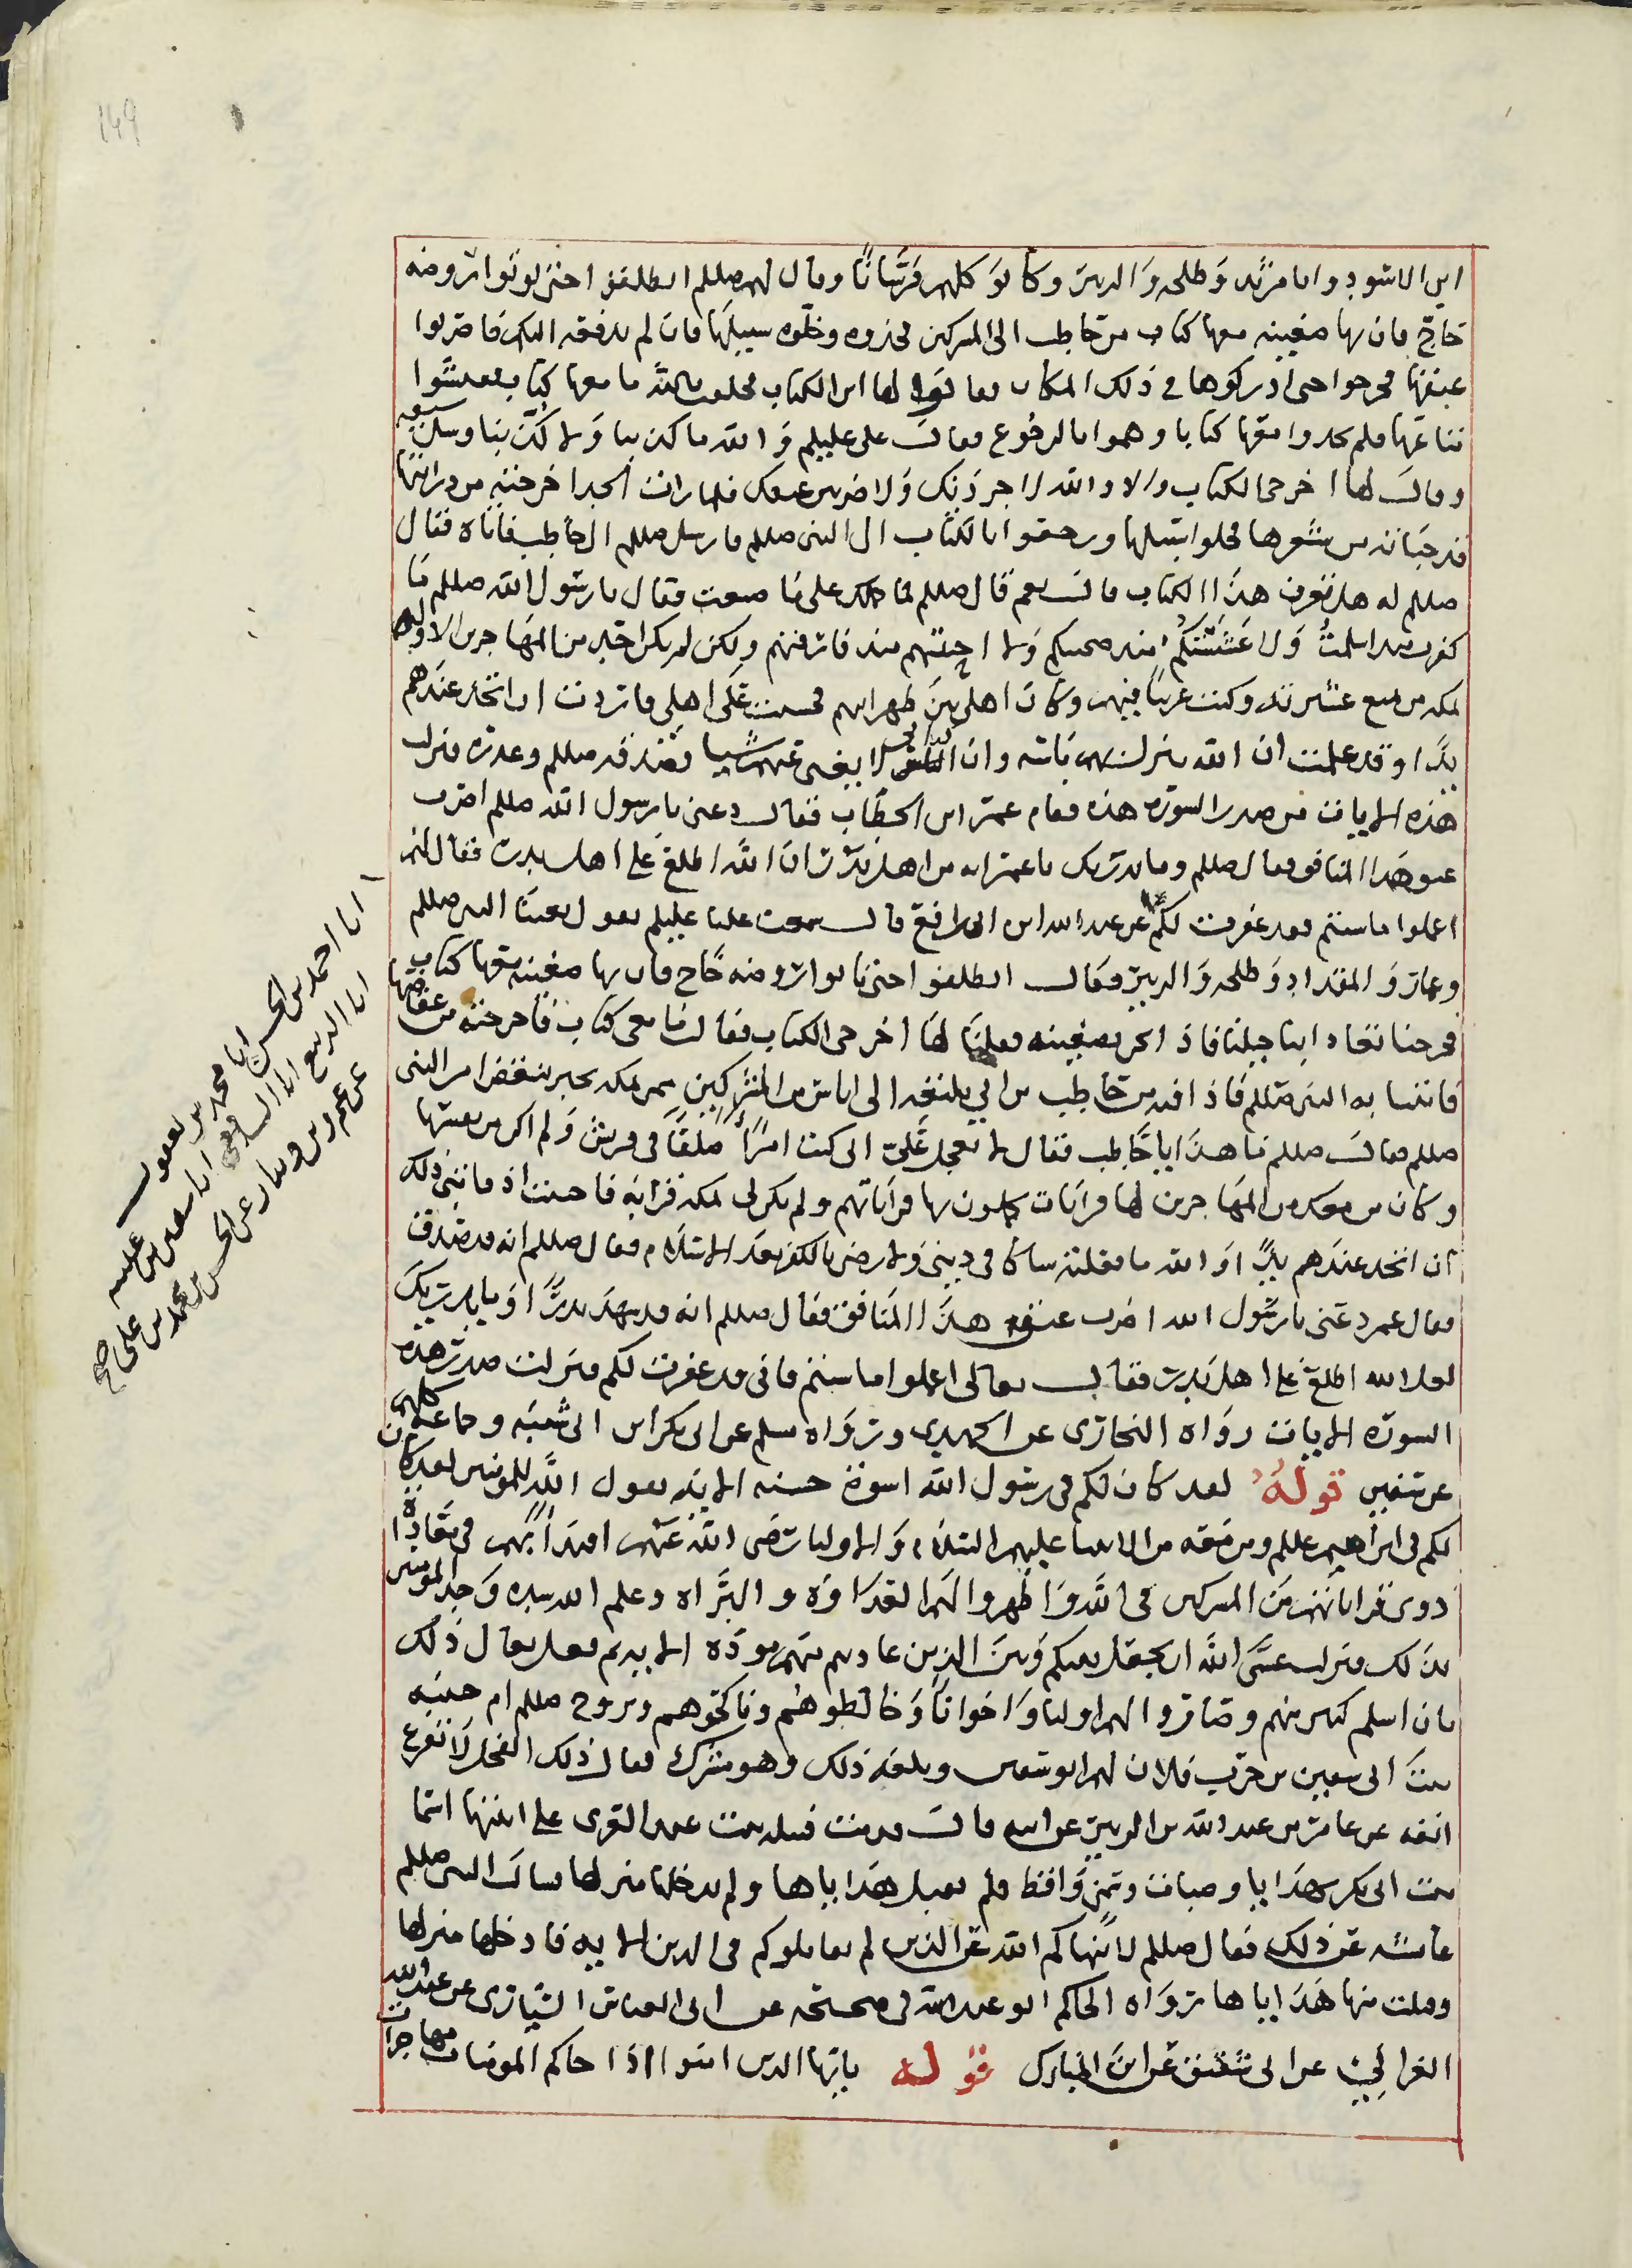 149
ابن الاسود وابا مرثد وطلحه والزبير وكانوا كلهم فرسانا وقال لهم صللم انطلقوا حتى تاتوا روضه
خاخ فان بها ظعينه معها كتاب من حاطب الى المشركين فخذوه وخلوه سبيلها فان لم تدفعه اليكم فاضربوا
عنقها فخرجوا حتى ادركوها في ذلك المكان فقالوا لها اين الكتاب فحلفت بالله ما معها كتاب ففتشوا
متاعها فلم يجدوا معها كتابا وهموا بالرجوع فقال علي عليلم والله ما كذبنا ولا كذبنا وسل سيفه
وقال لها اخرجي الكتاب والا والله لاجردنك ولاضربن عنقك فلما رات الجد اخرجته من ذوابتها
قد خباته من شعرها فخلوا سبيلها ورجعوا بالكتاب الى النبي صللم فارسل صللم الى حاطب فاتاه فقال
صللم له هل تعرف هذا الكتاب قال نعم قال صللم فما حملك على ما صنعت فقال يا رسول الله صللم ما
كفرت منذ اسلمت ولا غششتكم منذ صحبتكم ولا احببتهم منذ فارقتهم ولكن لم يكن احد من المهاجرين الا وله
بمكه من يمنع عشيرته وكنت غريبا فيهم وكان اهلي بين ظهرانيهم فخشيت على اهلي فاردت ان اتخذ عندهم
يدا وقد علمت ان الله ينزل بهم باسه وان كتابي لا يغني عنهم شيا فصدقه صللم وعذره فنزلت
هذه الايات من صدر السوره هذه فقام عمر ابن الخطاب فقال دعني يا رسول الله صللم اضرب
عنق هذا المنافق فقال صللم وما يدريك يا عمر انه من اهل بدر ان الله اطلع على اهل بدر فقال لهم
اعملوا ما شئتم فقد غفرت لكم عن عبد الله ابن ابي رافع قال سمعت عليا عليلم يقول بعثنا النبي صللم
وعمار والمقداد وطلحه والزبير وقال انطلقوا حتى تاتوا روضه خاخ فان بها ظعينه معها كتاب
فخرجنا تعادا بنا خيلنا فاذا نحن بظعينه فقلنا لها اخرجي الكتاب فقالت ما معي كتاب فاخرجته من عقاصها
فاتينا به النبي صللم فاذا فيه من حاطب من ابي بلتعه الى اناس من المشركين ممن بمكه يخبر ببعض امر النبي
صللم فقال صللم ما هذا يا حاطب فقال لا تعجل علي اني كنت امرا ملصقا في قريش ولم اكن من نفسها
وكان من معك من المهاجرين لها قرابات يحمون بها قراباتهم ولم يكن لي بمكه قرابه فاحببت اذ فاتني ذلك
ان اتخذ عندهم يدا والله ما فعلته شاكا في ديني ولا رضى بالكفر بعد الاسلام فقال صللم انه قد صدق
فقال عمر دعني يا رسول الله اضرب عنق هذا المنافق فقال صللم انه قد شهد بدرا وما يدريك
لعل الله اطلع على اهل بدر فقال تعالى اعملوا ما شئتم فاني قد غفرت لكم ونزلت صدر هذه
السوره الايات رواه البخاري عن الحميدي ورواه مسلم عن ابي بكر ابن ابي شيبه وجماعه كلهم
عن سفين قوله لقد كان لكم في رسول الله اسوه حسنه الايه يقول الله للمومنين لقد كان
لكم في ابراهيم عللم ومن معه من الانبيا عليهم السلام والاوليا رضي الله عنهم اقتدا بهم في معاداه
ذوى قراباتهم من المشركين في الله واظهروا لهم العداوه والبراه وعلم الله شده وجد المومنين
بذلك فنزلت عسى الله ان يجعل بينكم وبين الذين عاديتم منهم موده الايه ثم فعل تعالى ذلك
بان اسلم كثير منهم وصاروا لهم اوليا واخوانا وخالطوهم وناكحوهم وتزوج صللم ام حبيبه
بنت ابي سفين بن حرب فلان لهم ابو سفين وبلغه ذلك وهو مشرك فقال ذلك الفحل لا يقرع
انفه عن عامر بن عبد الله بن الزبير عن ابيه قال قدمت قتيله بنت عبد العزى على ابنتها اسما
بنت ابي بكر بهدايا وضباب وسمن واقط فلم تقبل هداياها ولم تدخلها منزلها فسالت النبي صللم
عايشه عن ذلك فقال صللم لا ينهاكم الله عن الذين لم يقاتلوكم في الدين الايه فادخلها منزلها
وقبلت منها هداياها رواه الحاكم ابو عبد الله في صحيحه عن ابي العباس السياري عن عبد الله
الغزالي عن ابي شقيق عن ابن المبارك قوله يا يها الذين امنوا اذا جاكم المومنات مهاجرات
انا احمد بن الحسن انا محمد بن يعقوب
انا الربيع انا الشافعي انا سفين بن عيينه
عن عمرو بن دينار عن الحسن بن محمد بن علي صح